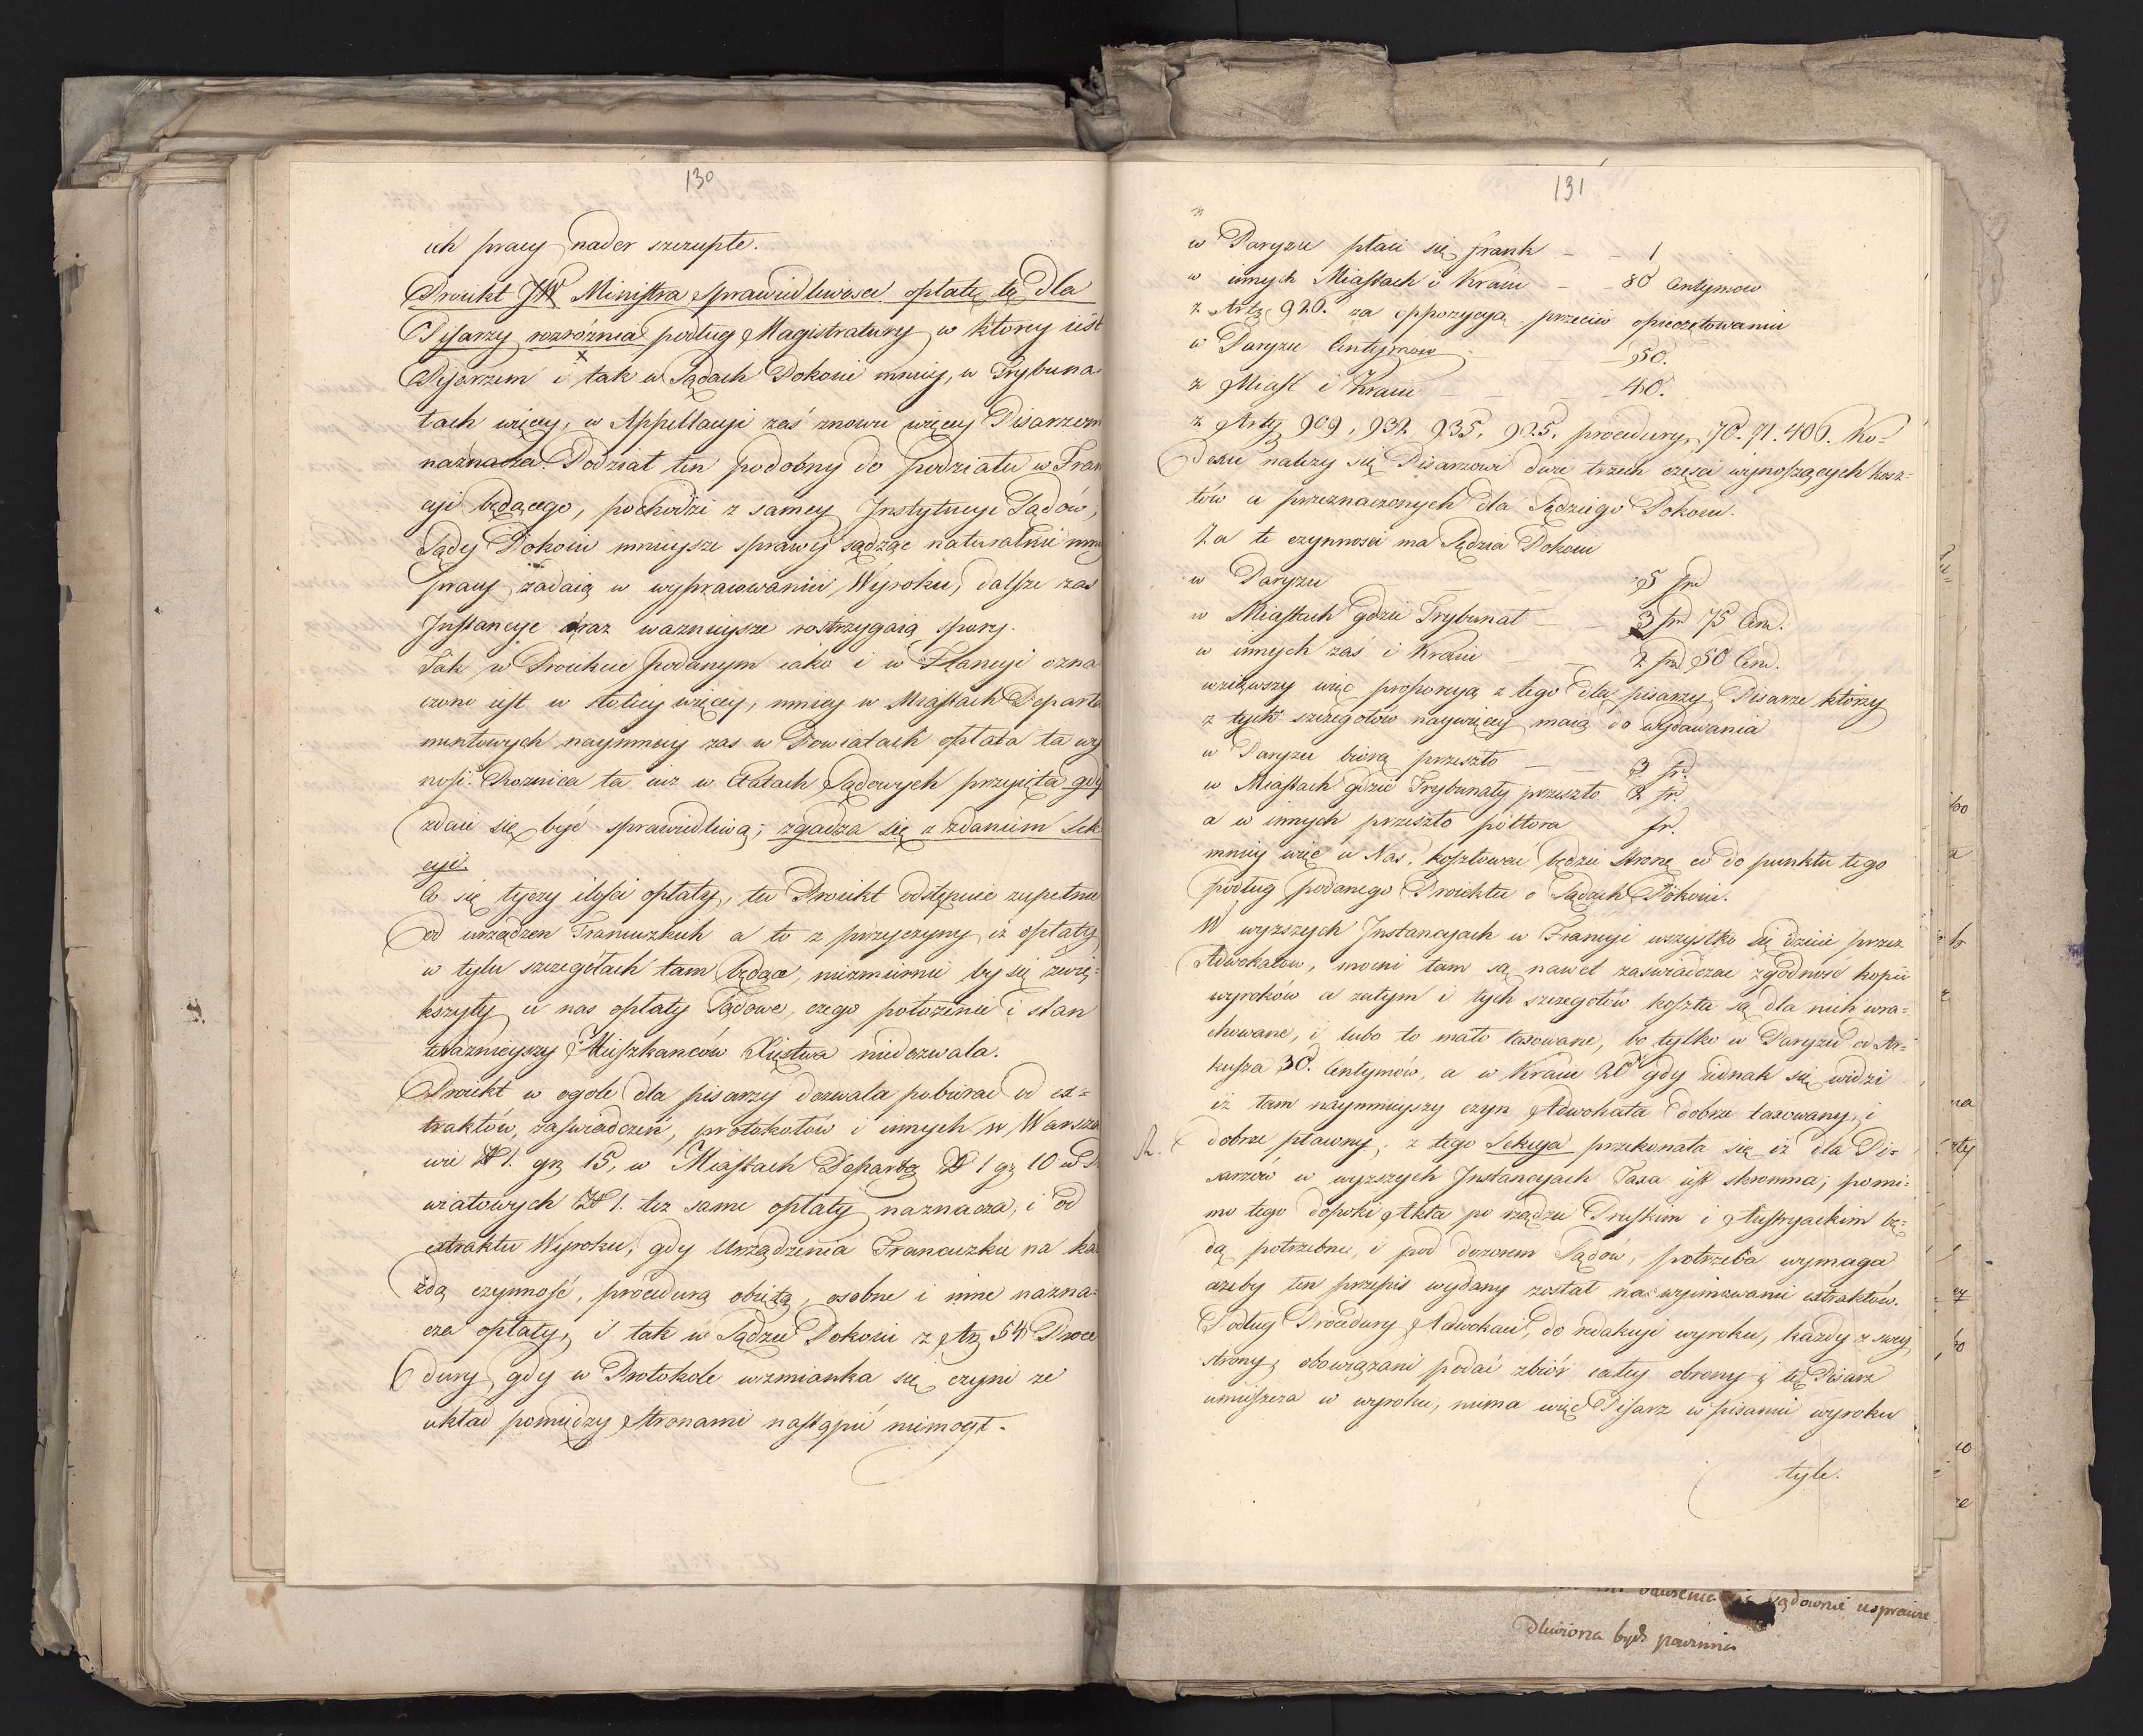 130
ich pracy nader szczupłe.
Proiekt JW Ministra Sprawiedliwosci opłatę tę dla
Pisarzy rozróżnia podług Magistratury w ktorey iest
Pisarzem i tak w Sądach Pokoiu mniey, w Trybuna-
łach więcey, w Appellacyi zaś znowu więcey Pisarzom
naznacza. Podział ten podobny do podziału w Fran
cyi będącego, pochodzi z samey Instytucyi Sądów,
Sądy Pokoiu mnieysze sprawy sądząc naturalnie mniey
pracy żądaią w wypracowaniu Wyroku, dalsze zas
Instancye coraz wazniejsze rostrzygaią spory.
Tak w Proiekcie podanym iako i w Francyi ozna
czono iest w stolicy więcey, mniey w Miastach Departa
mentowych naymniey zas w Powiatach opłata ta wy
nosi. Roznica ta iuz w Opłatach Sądowych przyięta gdy
zdaie się być sprawiedliwą; zgadza się z zdaniem Sek
cyi.
Co się tyczy ilości opłaty, tu Proiekt odstępuie zupełnie
od urządzen Francuzkich a to z przyczyny iż opłaty
w tylu szczegołach tam będące, niezmiernie by się zwię=
kszyły u nas opłaty Sądowe, czego położenie i stan
teraznieyszy Mieszkanców Xięstwa niedozwala.
Proiekt w ogole dla pisarzy dozwala pobierac od ex=
traktów, zaswiadczeń, protokołów i innych w Warsza
wie Zł 1. gr 15, w Miastach Departą Zł 1 gr 10 w Po
wiatowych Zł 1. też same opłaty naznacza, i od
extraktu Wyroku, gdy Urządzenia Francuzkie na ka
żdą czynność, procedurą obiętą, osobne i inne nazna=
cza opłaty, i tak w Sądzie Pokoiu z Ar 54 Proce
dury, gdy w Protokole wzmianka się czyni ze
układ pomiędzy stronami nastąpić niemogł.
131
w Paryzu płaci się frank - - 1
w innych Miastach i Kraiu - - 80 Centymow
z Artą 926. za oppozycyą przeciw opieczętowaniu
w Paryzu Centymow - - 50.
z Miast i Kraiu - - - 40.
z Artą 909, 932. 935, 925. procedury, 70. 71. 406. Ko-
dexu nalezy się Pisarzowi dwie trzech częsci wynoszących kosz-
tów a przeznaczonych dla Sędziego Pokoiu.
Za te czynnosci ma Sędzia Pokoiu
w Paryzu - - 5 fra
w Miastach gdzie Trybunał - - 3 fra 75 Cen.
w innych zaś i Kraiu - 2 fra 50 Cen.
wziąwszy więc proporcyą z tego dla pisarzy Pisarze którzy
z tych szczegołów naywięcey maią do wydawania
w Paryzu biorą przeszło - - 3 fr.
w Miastach gdzie Trybunały przeszło 2 fr.
a w innych przeszło półtora fr.
mniey więc u Nas kosztować będzie stronę co do punktu tego
podług podanego Proiektu o Sądach Pokoiu.
W wyzszych Instancyach w Francyi wszystko się dzieie przez
Adwokatow, mocni tam są nawet zaswiadczac zgodność kopii
wyroków a zatym i tych szczegołów koszta są dla nich wra=
chowane, i lubo to mało taxowane, bo tylko w Paryzu od Ar=
kusza 30. Centymów, a w Kraiu 20 gdy iednak się widzi
iż tam naymnieyszy czyn Adwokata dobrze taxowany, i
dobrze płatny, z tego Sekcya przekonała się iż dla Pi=
sarzów w wyzszych Instancyach Taxa iest skromna, pomi-
mo tego dopoki Akta po rządzie Pruskim i Austryackim bę=
dą potrzebne, i pod dozorem Sądów, potrzeba wymaga
azeby ten przepis wydany został na wyimowanie extraktów.
Podług Procedury Adwokaci, do redakcyi wyroku, kazdy z swey
strony, obowiązani podać zbiór całey obrony i te Pisarz
umieszcza w wyroku, niema więc Pisarz w pisaniu wyroku
tyle.
sądownie usprawie
dliwiona bydz powinna